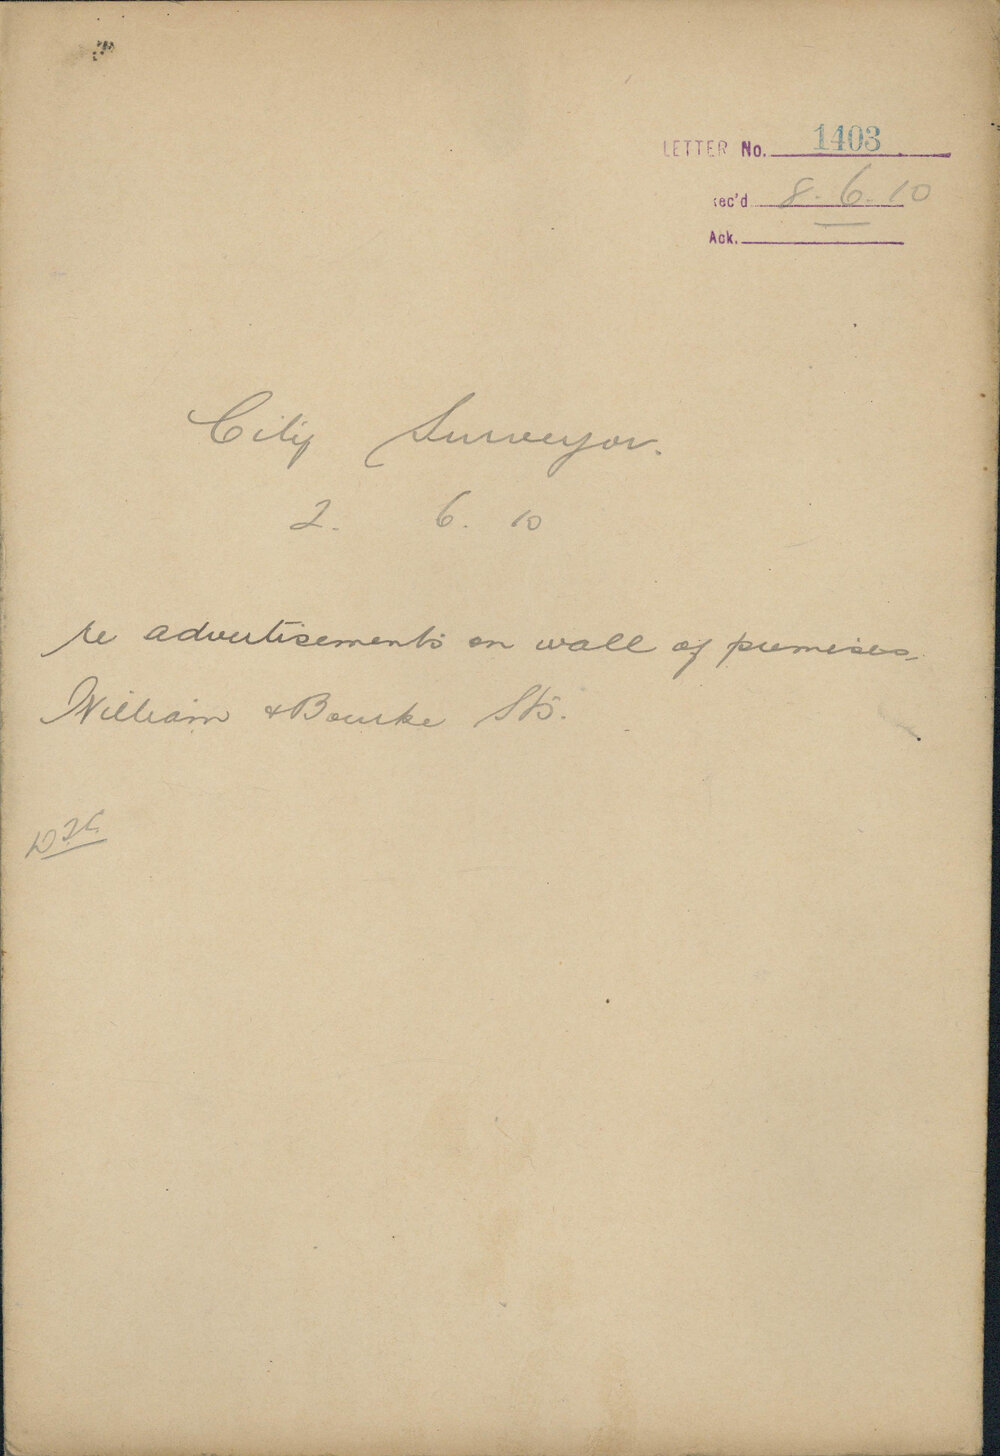 LETTER No. 1403
rec'd 8. 6. 10
Ack.
City Surveyor.
2. 6. 10
re advertisements on wall of premises
William & Bourke Sts.